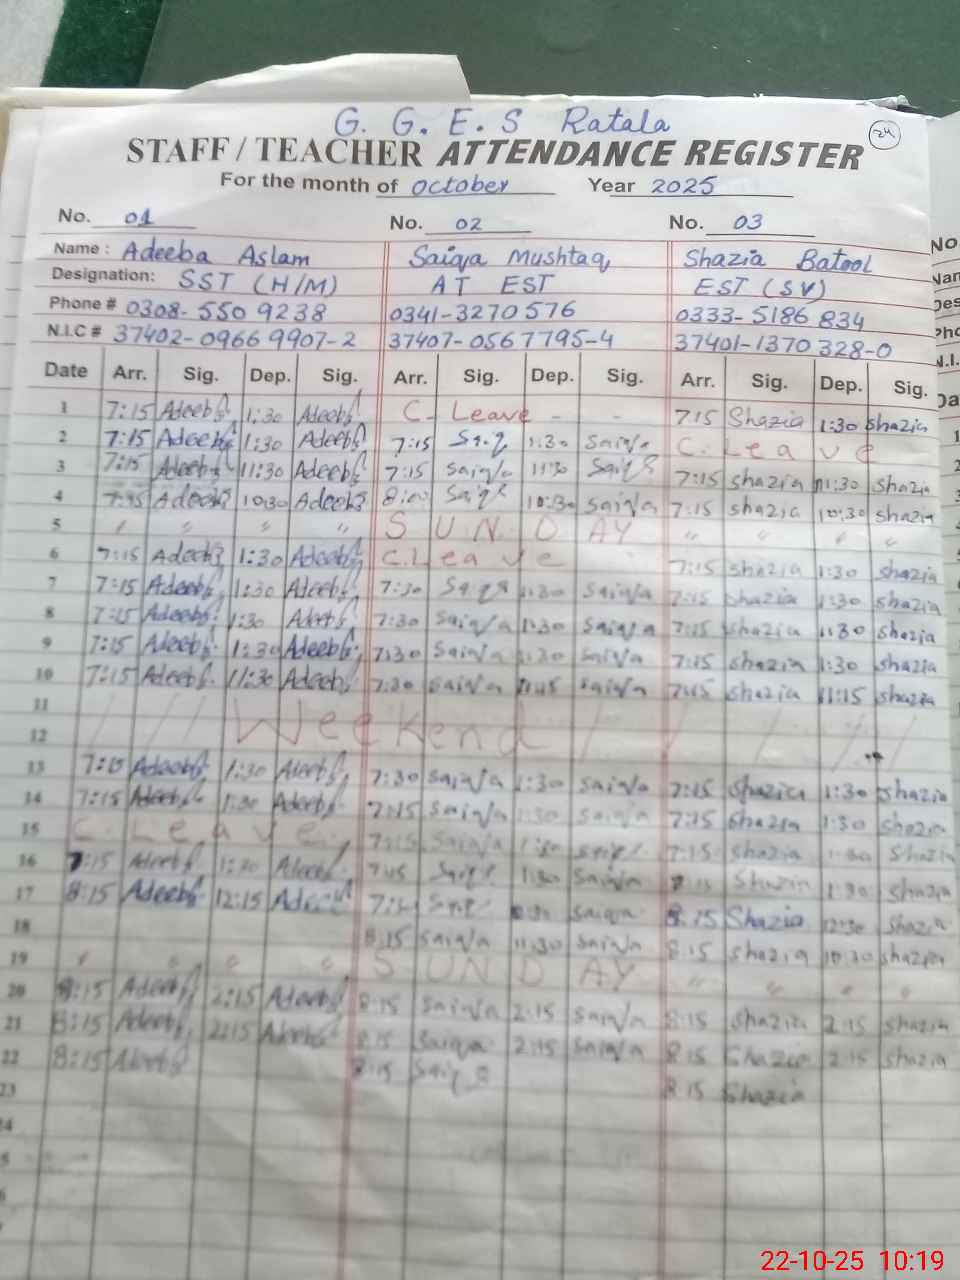 G. G. E. S Ratala
24
STAFF / TEACHER ATTENDANCE REGISTER
For the month of October Year 2025
No. 01 No. 02 No. 03
Name : Adeeba Aslam Saiqa Mushtaq Shazia Batool
Designation: SST (H/M) AT EST EST (SV)
Phone # 0308-550 9238 0341-3270576 0333-5186 834
N.I.C # 37402-0966 9907-2 37407-0567795-4 37401-1370 328-0
Date Arr. Sig. Dep. Sig. Arr. Sig. Dep. Sig. Arr. Sig. Dep. Sig.
1 7:15 Adeeba 1:30 Adeeba C. Leave - - 7:15 Shazia 1:30 shazia
2 7:15 Adeeba 1:30 Adeeba 7:15 Saiqa 1:30 Saiqa C. Leave
3 7:15 Adeeba 11:30 Adeeba 7:15 saiqa 11:30 Saiqa 7:15 shazia 11:30 shazia
4 Adeeba 10:30 Adeeba 8:00 Saiqa 10:30 saiqa 7:15 shazia 10:30 shazia
5 " " " " SUNDAY " " " "
6 7:15 Adeeba 1:30 Adeeba C. Leave 7:15 shazia 1:30 shazia
7 7:15 Adeeba 1:30 Adeeba 7:30 Saiqa 1:30 saiqa 7:15 shazia 1:30 shazia
8 7:15 Adeeba 1:30 Adeeba 7:30 saiqa 1:30 saiqa 7:15 shazia 1:30 shazia
9 7:15 Adeeba 1:30 Adeeba 7:30 saiqa 1:30 saiqa 7:15 shazia 1:30 shazia
10 7:15 Adeeba 11:30 Adeeba 7:30 saiqa saiqa 7:15 shazia 11:15 shazia
11
12 Weekend
13 7:15 Adeeba 1:30 Adeeba 7:30 saiqa 1:30 saiqa 7:15 Shazia 1:30 shazia
14 7:15 Adeeba 1:30 Adeeba 7:15 saiqa 1:30 saiqa 7:15 shazia 1:30 shazia
15 C. Leave. 7:15 saiqa 1:30 saiqa 7:15 shazia 1:30 Shazia
16 7:15 Adeeba 1:30 Adeeba Saiqa 1:30 Saiqa Shazia 1:30 shazia
17 8:15 Adeeba 12:15 Adeeba Saiqa saiqa 8:15 Shazia 12:30 shazia
18 8:15 saiqa 11:30 saiqa 8:15 shazia 10:30 shazia
19 " " " " SUNDAY " " " "
20 8:15 Adeeba 2:15 Adeeba 8:15 saiqa 2:15 saiqa 8:15 shazia 2:15 shazia
21 8:15 Adeeba 2:15 Adeeba 8:15 saiqa 2:15 saiqa 8:15 Shazia 2:15 shazia
22 8:15 Adeeba 8:15 Saiqa 8:15 Shazia
23
22-10-25 10:19